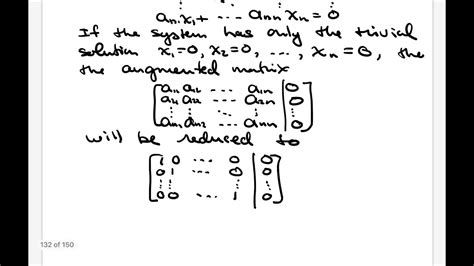 ⋮ ⋮ ⋮
an1x1+ --- annxn = 0
If the system has only the trivial
solution x1=0, x2=0, ..., xn=0, the
the augmented matrix
[a11 a12 --- a1n | 0
a21 a22 --- a2n | 0
⋮ ⋮ ⋮ | ⋮
an1 an2 --- ann | 0]
will be reduced to
[1 0 --- 0 | 0
0 1 --- 0 | 0
⋮ ⋮ ⋮ | ⋮
0 0 --- 1 | 0]
132 of 150